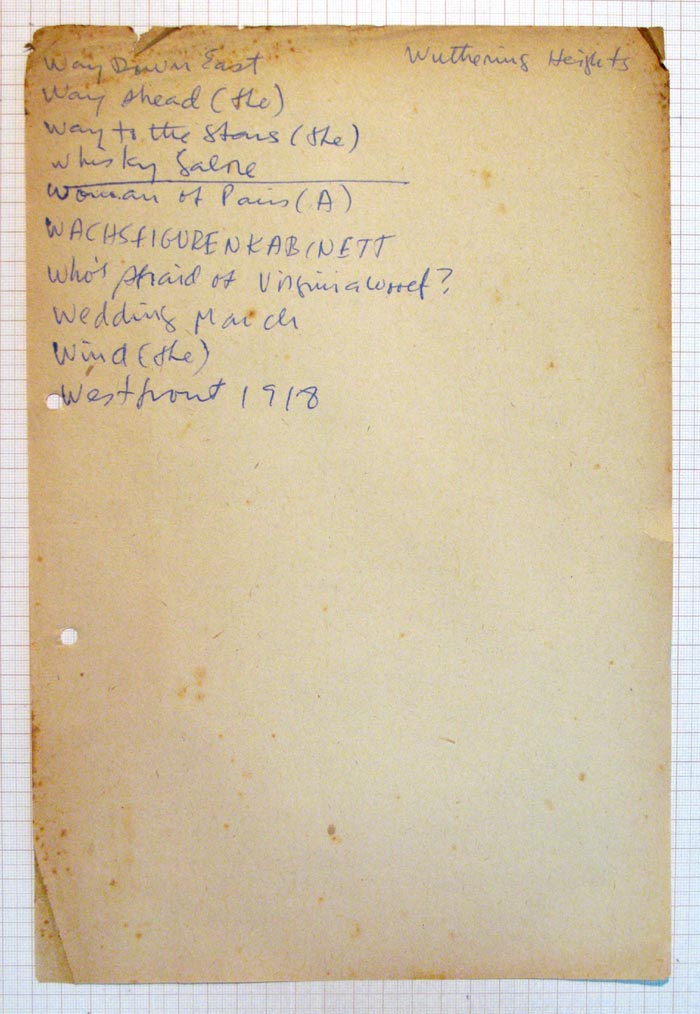 Way Down East
Wuthering Heights
Way Ahead (The)
Way to the Stars (The)
Whisky Galore
Woman of Paris (A)
WACHSFIGURENKABINETT
Who's Afraid of Virginia Woolf?
Wedding March
Wind (The)
Westfront 1918